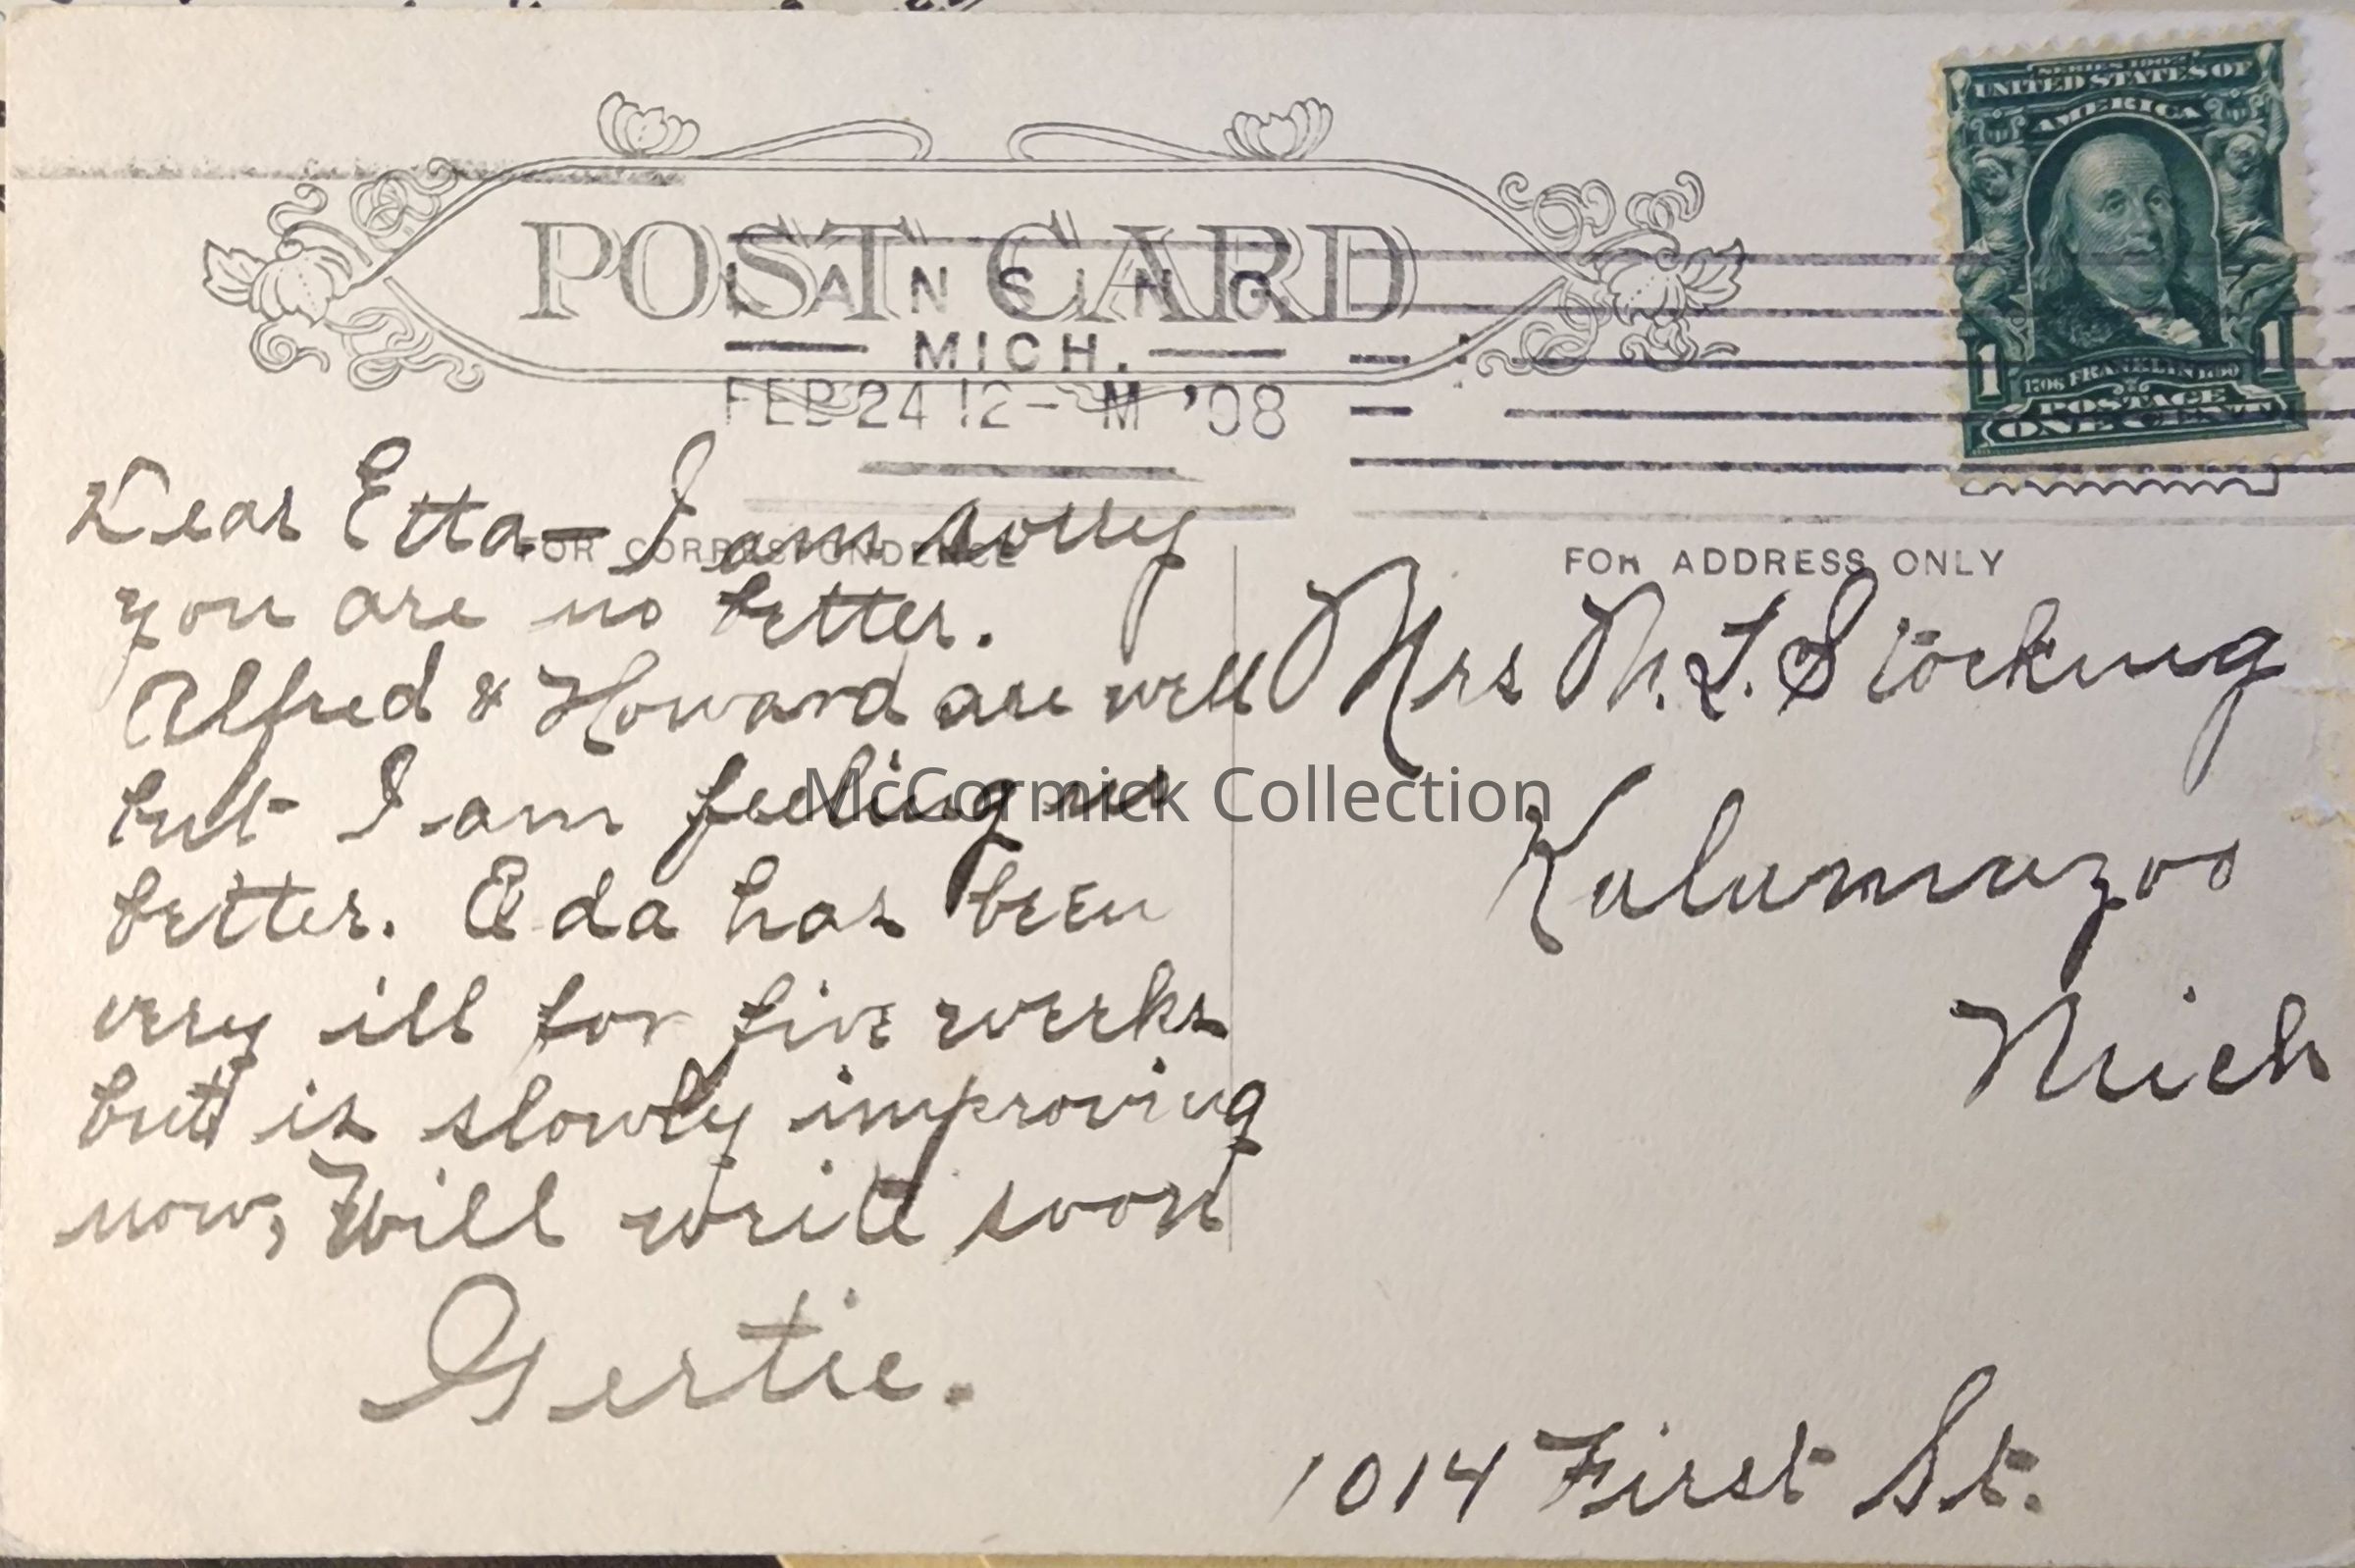 SERIES 1902
UNITED STATES OF
AMERICA
1706 FRANKLIN 1790
POSTAGE
ONE CENT
1 1
POST CARD
LANSING
MICH.
FEB 24 12- M '08
FOR CORRESPONDENCE
Dear Etta - I am sorry
you are no better.
Alfred & Howard are well
but I am feeling
better. Eda has been
very ill for five weeks
but is slowly improving
now, Will write soon
Gertie.
FOR ADDRESS ONLY
Mrs M. L. Stocking
Kalamazoo
Mich
1014 First St.
McCormick Collection